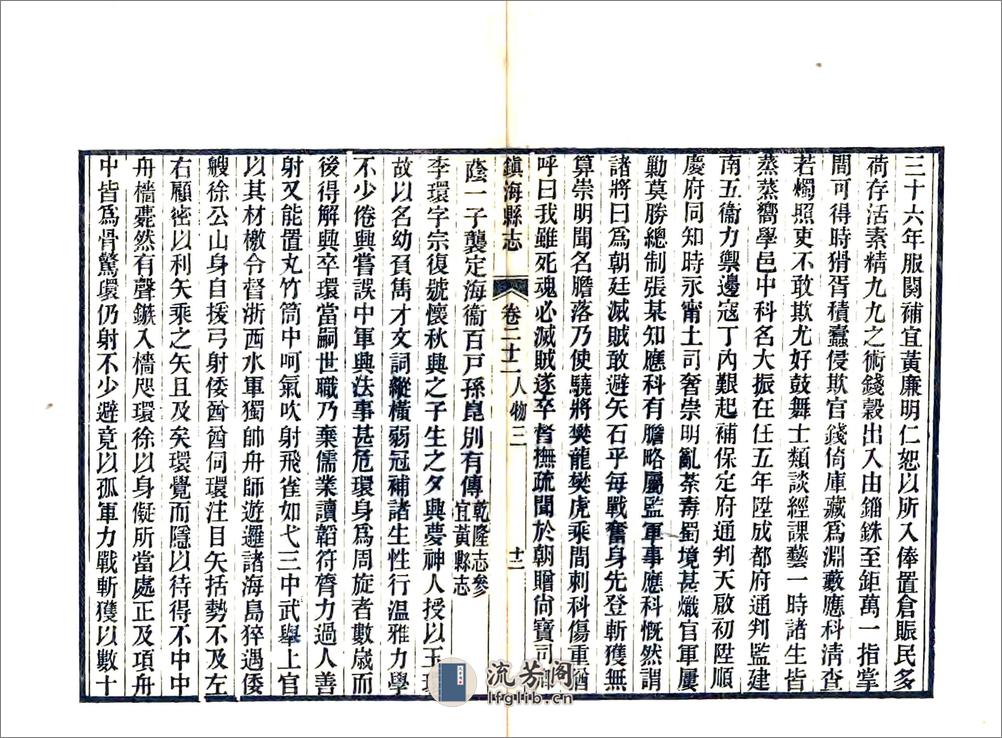 三十六年服闋補宜黃廉明仁恕以所入俸置倉賑民多
荷存活素精九九之術錢穀出入由錙銖至鉅萬一指掌
間可得時猾胥積蠹侵欺官錢倚庫藏爲淵藪應科淸查
若燭照吏不敢欺尤好鼓舞士類談經課藝一時諸生皆
蒸蒸嚮學邑中科名大振在任五年陞成都府通判監建
南五衞力禦邊寇丁內艱起補保定府通判天啟初陞順
慶府同知時永甯土司奢崇明亂荼毒蜀境甚熾官軍屢
勦莫勝總制張某知應科有膽略屬監軍事應科慨然謂
諸將曰爲朝廷滅賊敢避矢石乎每戰奮身先登斬獲無
算崇明聞名膽落乃使驍將樊龍樊虎乘間刺科傷重猶
呼曰我雖死魂必滅賊遂卒督撫疏聞於朝贈尙寶司
鎭海縣志
卷二十二
人物三
十二
蔭一子襲定海衞百戸孫皇別有傳
乾隆志參
宜黃縣志
李環字宗復號懷秋興之子生之夕興夢神人授以玉
故以名幼負雋才文詞縱橫弱冠補諸生性行温雅力學
不少倦興嘗誤中軍興法事甚危環身爲周旋者數歲而
後得解興卒環當嗣世職乃棄儒業讀韜符膂力過人善
射又能置丸竹筒中呵氣吹射飛雀如弋三中武舉上官
以其材檄令督浙西水軍獨帥舟師遊邏諸海島猝遇倭
艘徐公山身自援弓射倭酋酋伺環注目矢括勢不及左
右顧密以利矢乘之矢且及矣環覺而隱以待得不中中
舟檣譶然有聲鏃入檣咫環徐以身儗所當處正及項舟
中皆爲骨驚環仍射不少避竟以孤軍力戰斬獲以數十
流芳阁
lfglib.cn